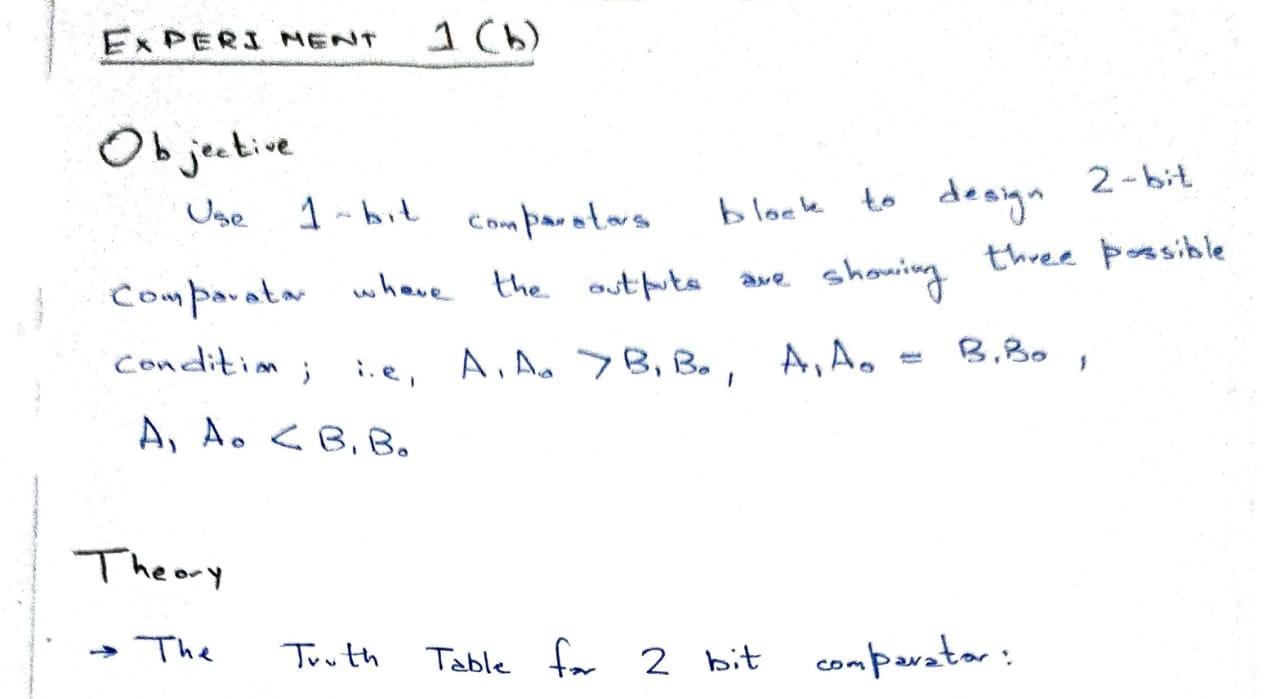 EXPERIMENT 1 (b)
Objective
Use 1-bit comparators block to design 2-bit
comparator where the outputs are showing three possible
condition ; i.e, A₁A₀ > B₁B₀ , A₁A₀ = B₁B₀ ,
A₁ A₀ < B₁B₀
Theory
→ The Truth Table for 2 bit comparator :